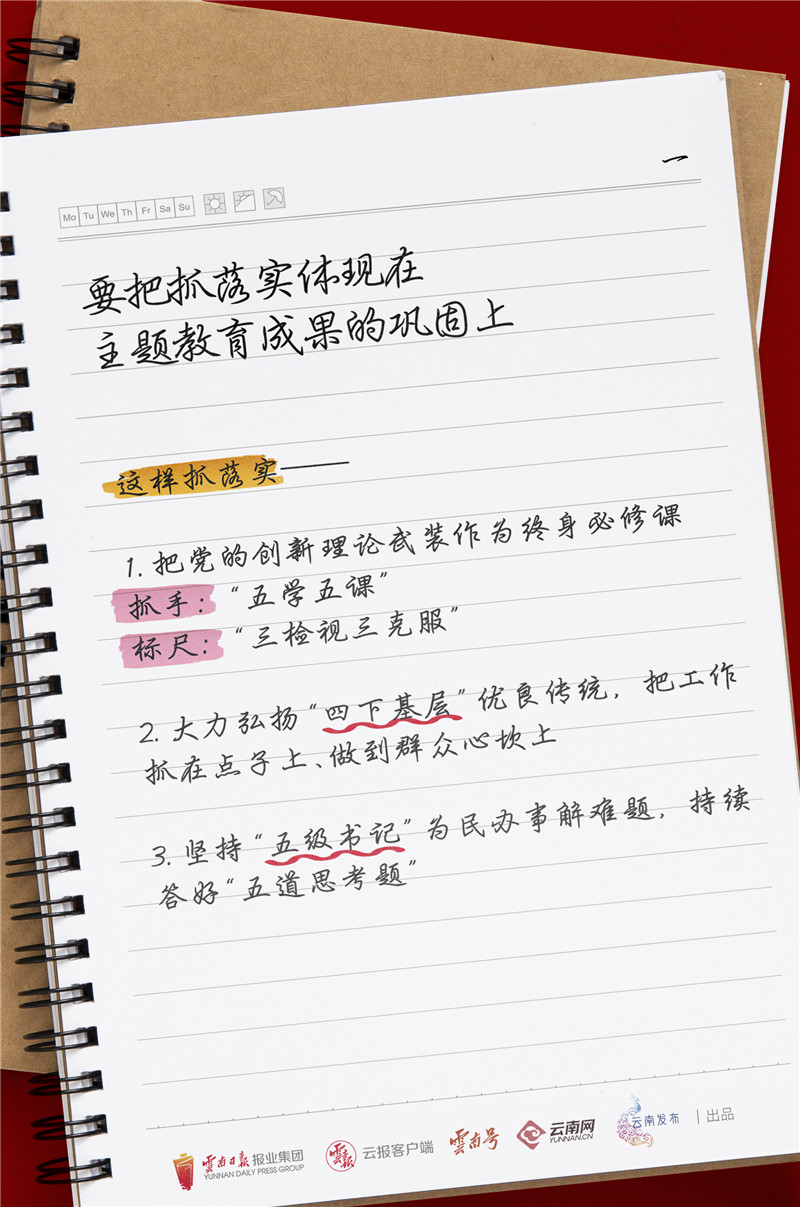 一
Mo Tu We Th Fr Sa Su
要把抓落实体现在
主题教育成果的巩固上
这样抓落实——
1. 把党的创新理论武装作为终身必修课
抓手：“五学五课”
标尺：“三检视三克服”
2. 大力弘扬“四下基层”优良传统，把工作
抓在点子上、做到群众心坎上
3. 坚持“五级书记”为民办事解难题，持续
答好“五道思考题”
雲南日报 报业集团 雲报 云报客户端 雲南号 云南网 云南发布 | 出品
YUNNAN DAILY PRESS GROUP YUNNAN.CN